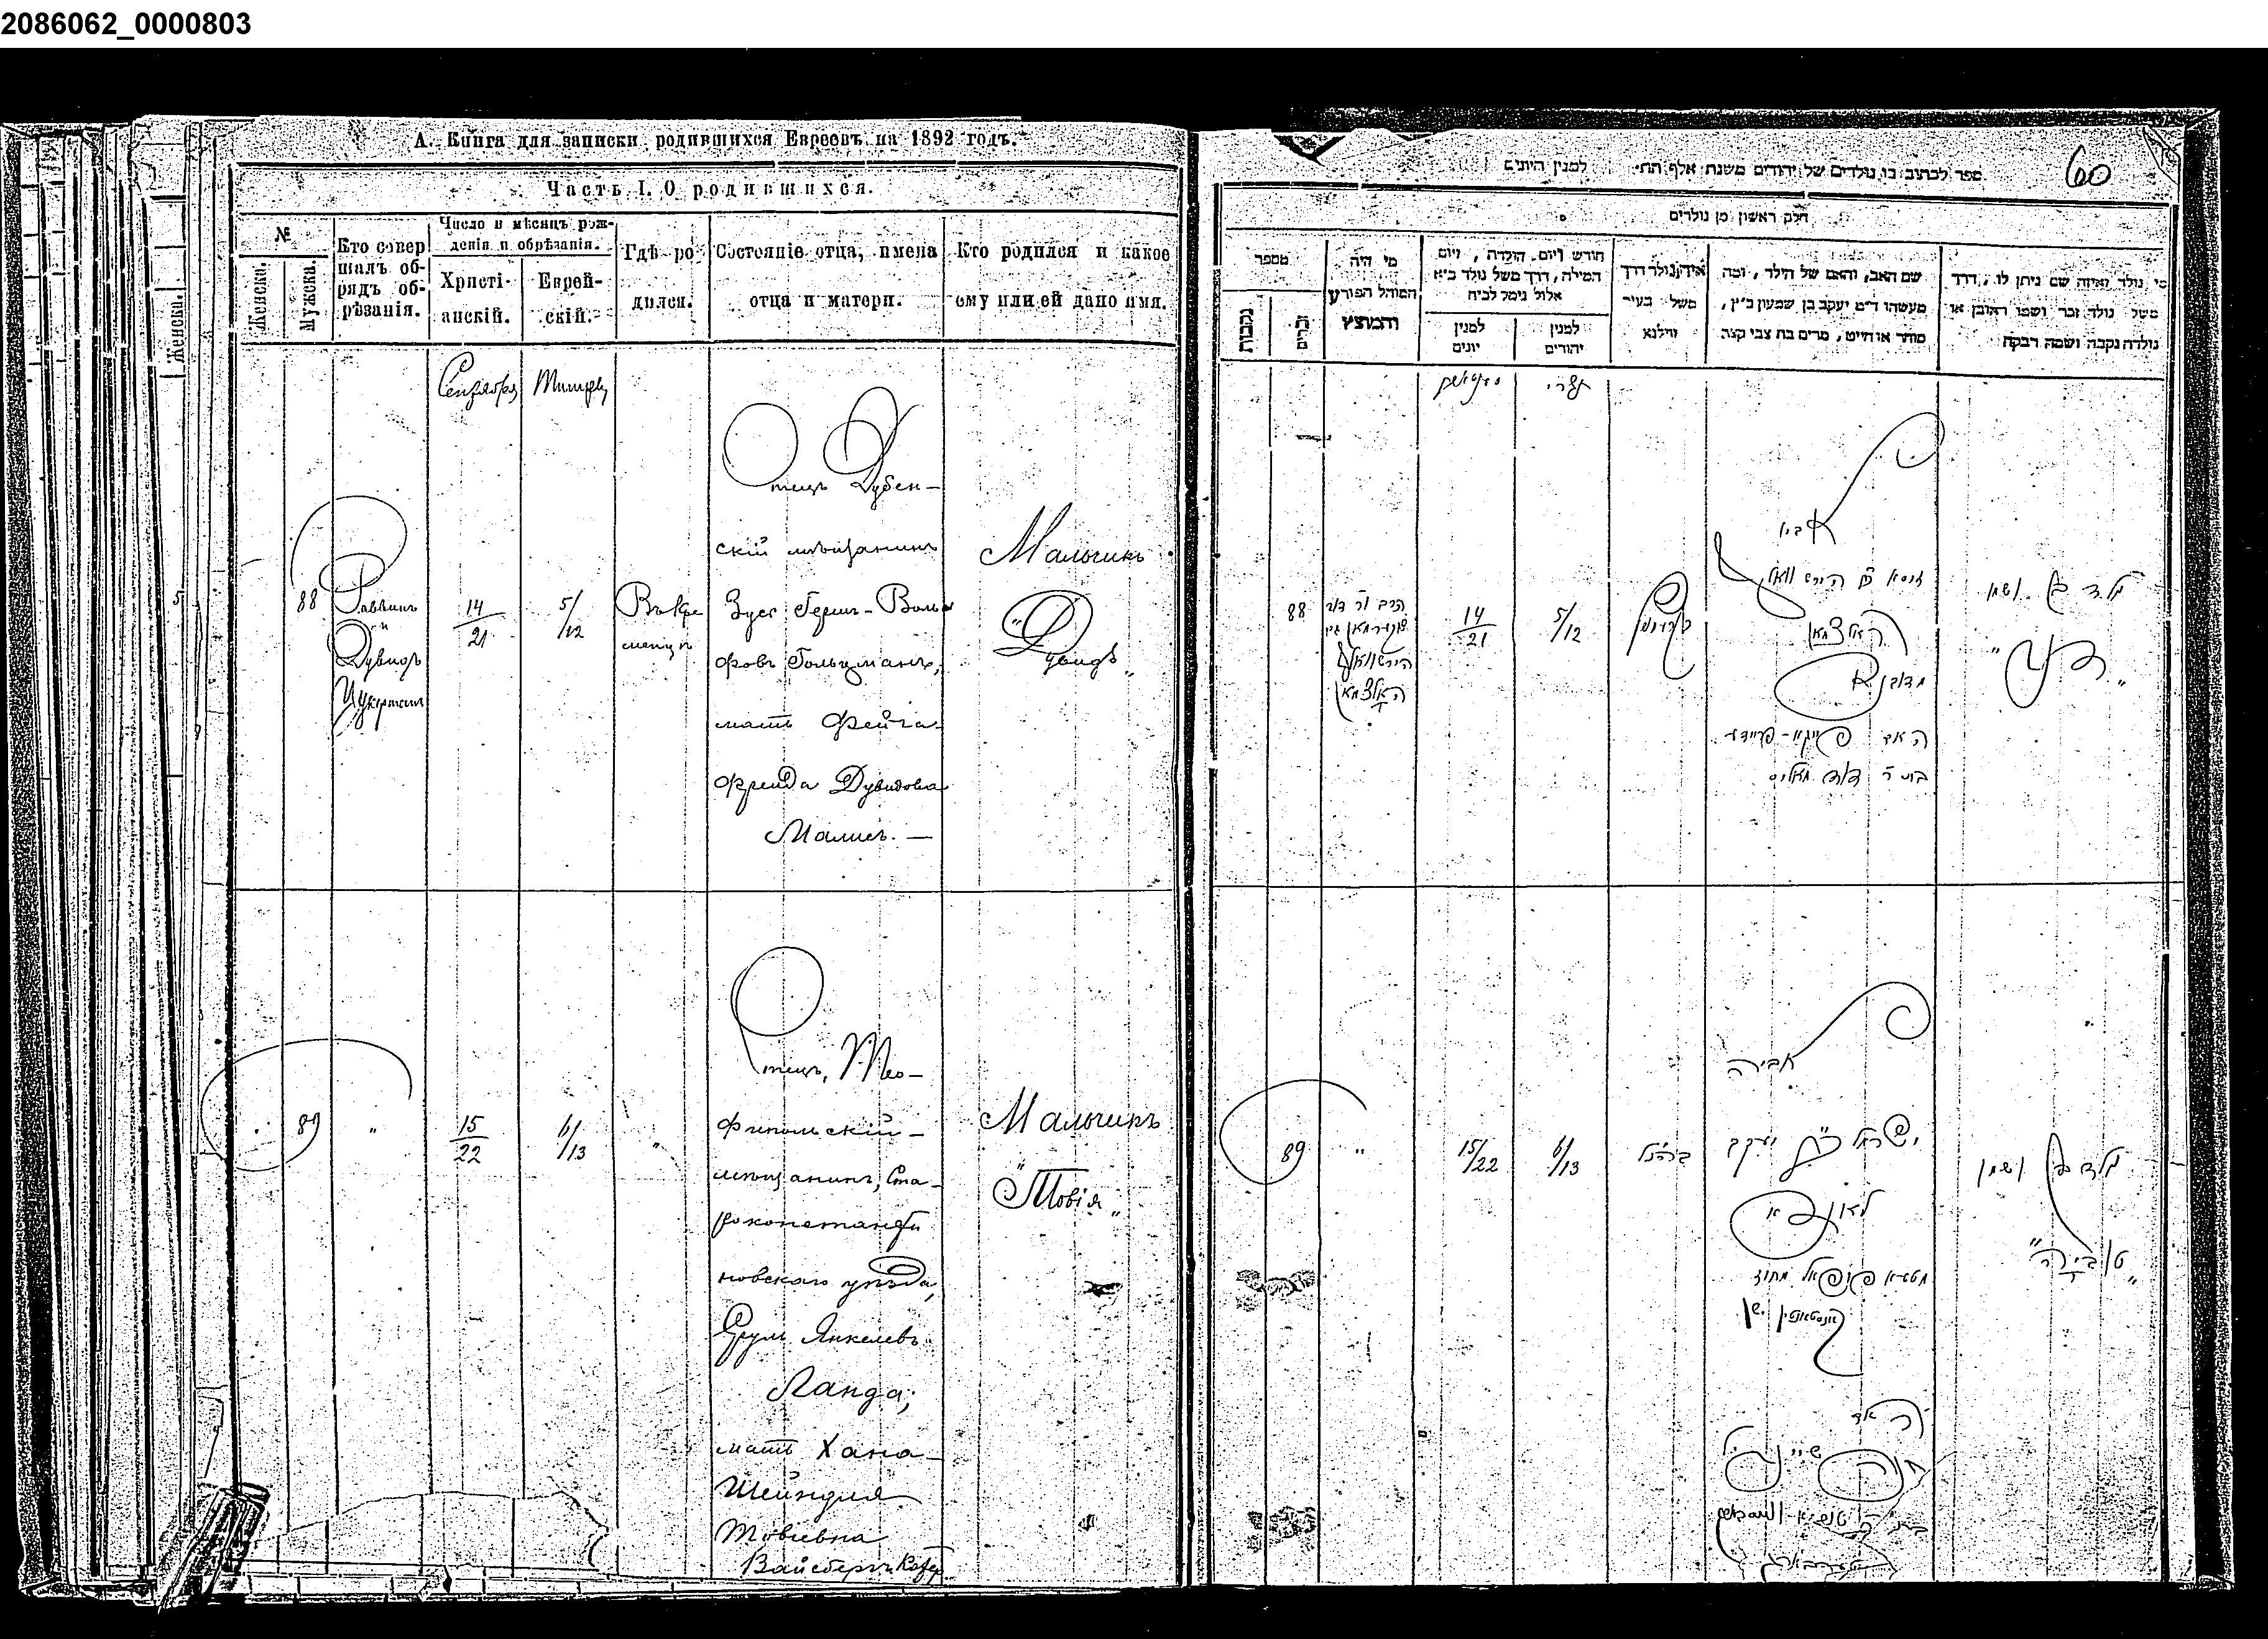 2086062_0000803
А. Книга для записки родившихся Евреевъ на 1892 годъ.
Часть I. О родившихся.
№
Женски.
Мужска.
Кто совер
шалъ об-
рядъ об-
рѣзанія.
Число и мѣсяцъ рож-
денія и обрѣзанія.
Христі-
анскій.
Еврей-
скій.
Гдѣ ро-
дился.
Состояніе отца, имена
отца и матери.
Кто родился и какое
ему или ей дано имя.
Женски.
5
Сентября
88
Раввинъ
и
Дувидъ
Цукерманъ
14
21
5/
12
Въ Кре
менцѣ
Отецъ Дубен-
скій мѣщанинъ
Зусь Герш-Воль
фовъ Гольцманъ,
мать Фейга-
Фрейда Дувидова
Малис. —
Мальчикъ
"Дувидъ"
89
"
15
22
6/
13
"
Отецъ, Тео-
фипольскій
мѣщанинъ, Ста-
роконстанти
новскаго уѣзда,
Срул Янкелевъ
Ланда,
мать Хана-
Шейндля
Товіевна
Мальчикъ
"Товія"
60
ספר לכתוב בו נולדים של יהודים משנת אלף תת׳ למנין היונים
חלק ראשון מן נולדים
מספר
נקבות
זכרים
מי היה
המוהל הפורע
והמוצץ
חודש ויום הולדה, ויום
המילה, דרך משל נולד בי״א
אלול נימל לכ״ח
למנין
יונים
למנין
יהודים
איזה נולד דרך
משל בעיר
ווילנא
שם האב, והאם של הילד, ומה
מעשהו ד״מ יעקב בן שמעון כ״ץ,
סוחר או חייט, מרים בת צבי קצב
מי נולד ואיזה שם ניתן לו, דרך
משל נולד זכר ושמו ראובן או
נולדה נקבה ושמה רבקה
תשרי
88
14
21
5/12
אביו
האלצמאן
מדובנא
האם פייגא-פריידע
בת ר׳ דוד מאליס
ילד בן ושמו
"דוד"
89
"
15/22
6/13
אביה
ישראל יעקב
לאנדא
ילד בן ושמו
"טוביה"
האם